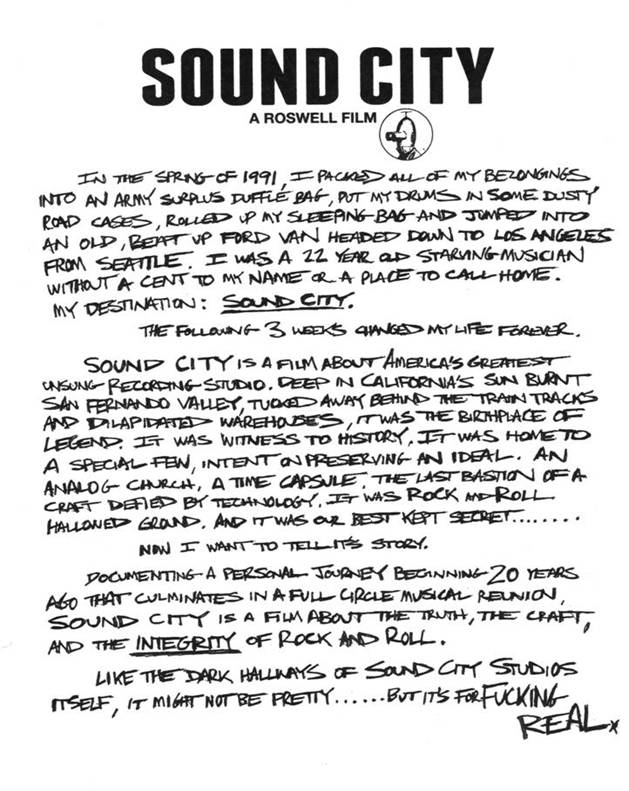 SOUND CITY
A ROSWELL FILM
IN THE SPRING OF 1991, I PACKED ALL OF MY BELONGINGS
INTO AN ARMY SURPLUS DUFFLE BAG, PUT MY DRUMS IN SOME DUSTY
ROAD CASES, ROLLED UP MY SLEEPING BAG AND JUMPED INTO
AN OLD, BEAT UP FORD VAN HEADED DOWN TO LOS ANGELES
FROM SEATTLE. I WAS A 22 YEAR OLD STARVING MUSICIAN
WITHOUT A CENT TO MY NAME OR A PLACE TO CALL HOME.
MY DESTINATION: SOUND CITY.
THE FOLLOWING 3 WEEKS CHANGED MY LIFE FOREVER.
SOUND CITY IS A FILM ABOUT AMERICA'S GREATEST
UNSUNG RECORDING STUDIO. DEEP IN CALIFORNIA'S SUN BURNT
SAN FERNANDO VALLEY, TUCKED AWAY BEHIND THE TRAIN TRACKS
AND DILAPIDATED WAREHOUSES, IT WAS THE BIRTHPLACE OF
LEGEND. IT WAS WITNESS TO HISTORY. IT WAS HOME TO
A SPECIAL FEW, INTENT ON PRESERVING AN IDEAL. AN
ANALOG CHURCH, A TIME CAPSULE. THE LAST BASTION OF A
CRAFT DEFIED BY TECHNOLOGY. IT WAS ROCK AND ROLL
HALLOWED GROUND. AND IT WAS OUR BEST KEPT SECRET........
NOW I WANT TO TELL IT'S STORY.
DOCUMENTING A PERSONAL JOURNEY BEGINNING 20 YEARS
AGO THAT CULMINATES IN A FULL CIRCLE MUSICAL REUNION,
SOUND CITY IS A FILM ABOUT THE TRUTH, THE CRAFT,
AND THE INTEGRITY OF ROCK AND ROLL.
LIKE THE DARK HALLWAYS OF SOUND CITY STUDIOS
ITSELF, IT MIGHT NOT BE PRETTY......BUT IT'S FOR FUCKING
REAL.x